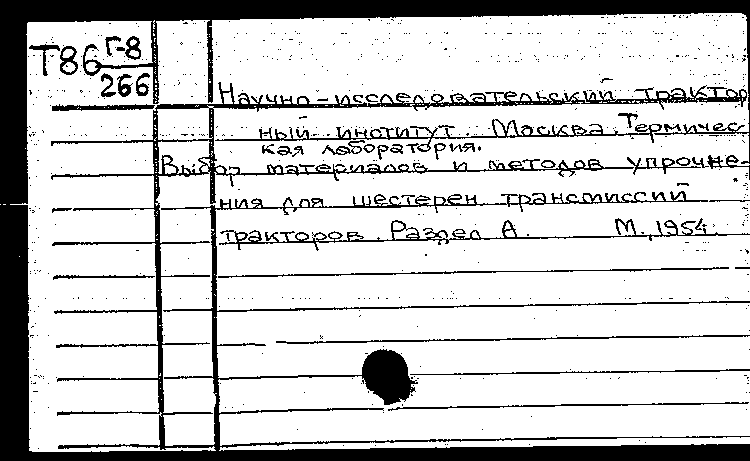 Т86 Г-8
266
Научно-исследовательский трактор
ный институт. Москва. Термичес-
кая лаборатория.
Выбор материалов и методов упрочне-
ния для шестерен трансмиссий
тракторов. Раздел А. М., 1954.